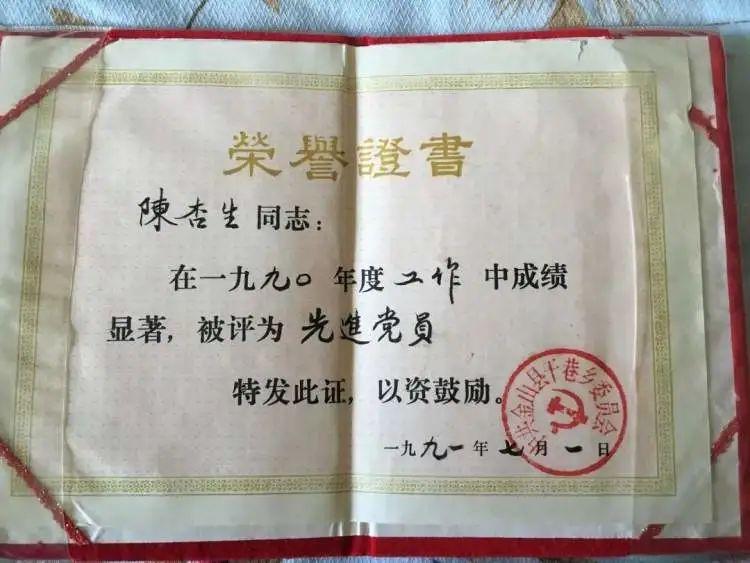 榮譽證書
陳杏生同志：
在一九九〇年度工作中成绩
显著，被评为先進党員
特发此证，以资鼓励。
中共金山县干巷乡委员会
一九九一年七月一日